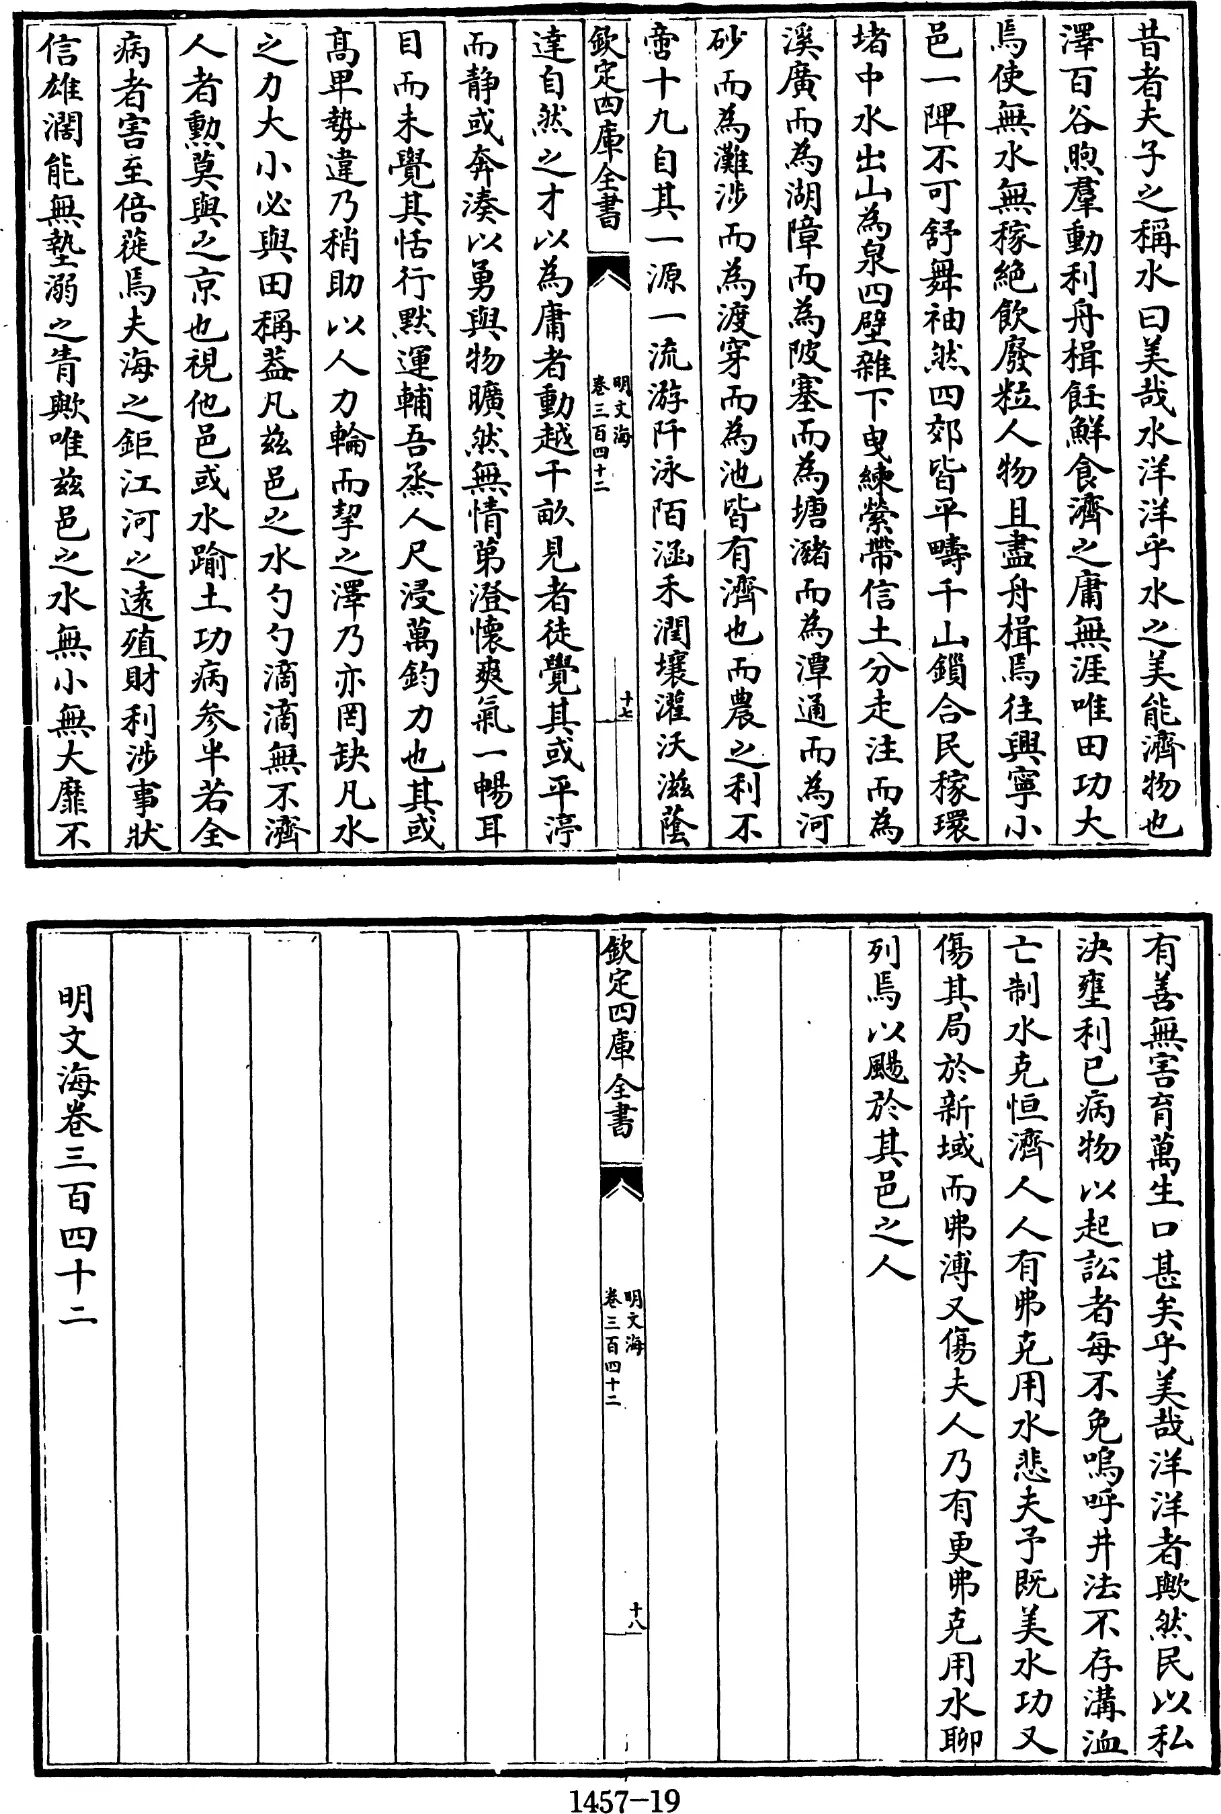 昔者夫子之稱水曰美哉水洋洋乎水之美能濟物也
澤百谷煦羣動利舟楫飪鮮食濟之庸無涯唯田功大
焉使無水無稼絶飲廢粒人物且盡舟楫焉往興寧小
邑一陴不可舒舞袖然四郊皆平疇千山鎻合民稼環
堵中水出山為泉四壁雜下曳練縈帶信土分走注而為
溪廣而為湖障而為陂塞而為塘瀦而為潭通而為河
砂而為灘涉而為渡穿而為池皆有濟也而農之利不
啻十九自其一源一流游阡泳陌涵禾潤壤灌沃滋蔭
欽定四庫全書
明文海
卷三百四十二
十七
達自然之才以為庸者動越千畝見者徒覺其或平渟
而静或奔湊以勇與物曠然無情第澄懷爽氣一暢耳
目而未覺其恬行黙運輔吾烝人尺浸萬鈞力也其或
高卑勢違乃稍助以人力輪而挈之澤乃亦罔缺凡水
之力大小必與田稱葢凡兹邑之水勺勺滴滴無不濟
人者勳莫與之京也視他邑或水踰土功病參半若全
病者害至倍蓰焉夫海之鉅江河之遠殖財利涉事狀
信雄濶能無墊溺之眚歟唯兹邑之水無小無大靡不
有善無害育萬生口甚矣乎美哉洋洋者歟然民以私
決壅利已病物以起訟者每不免嗚呼井法不存溝洫
亡制水克恒濟人人有弗克用水悲夫予既美水功又
傷其局於新域而弗溥又傷夫人乃有更弗克用水聊
列焉以颺於其邑之人
欽定四庫全書
明文海
卷三百四十二
十八
明文海卷三百四十二
1457-19